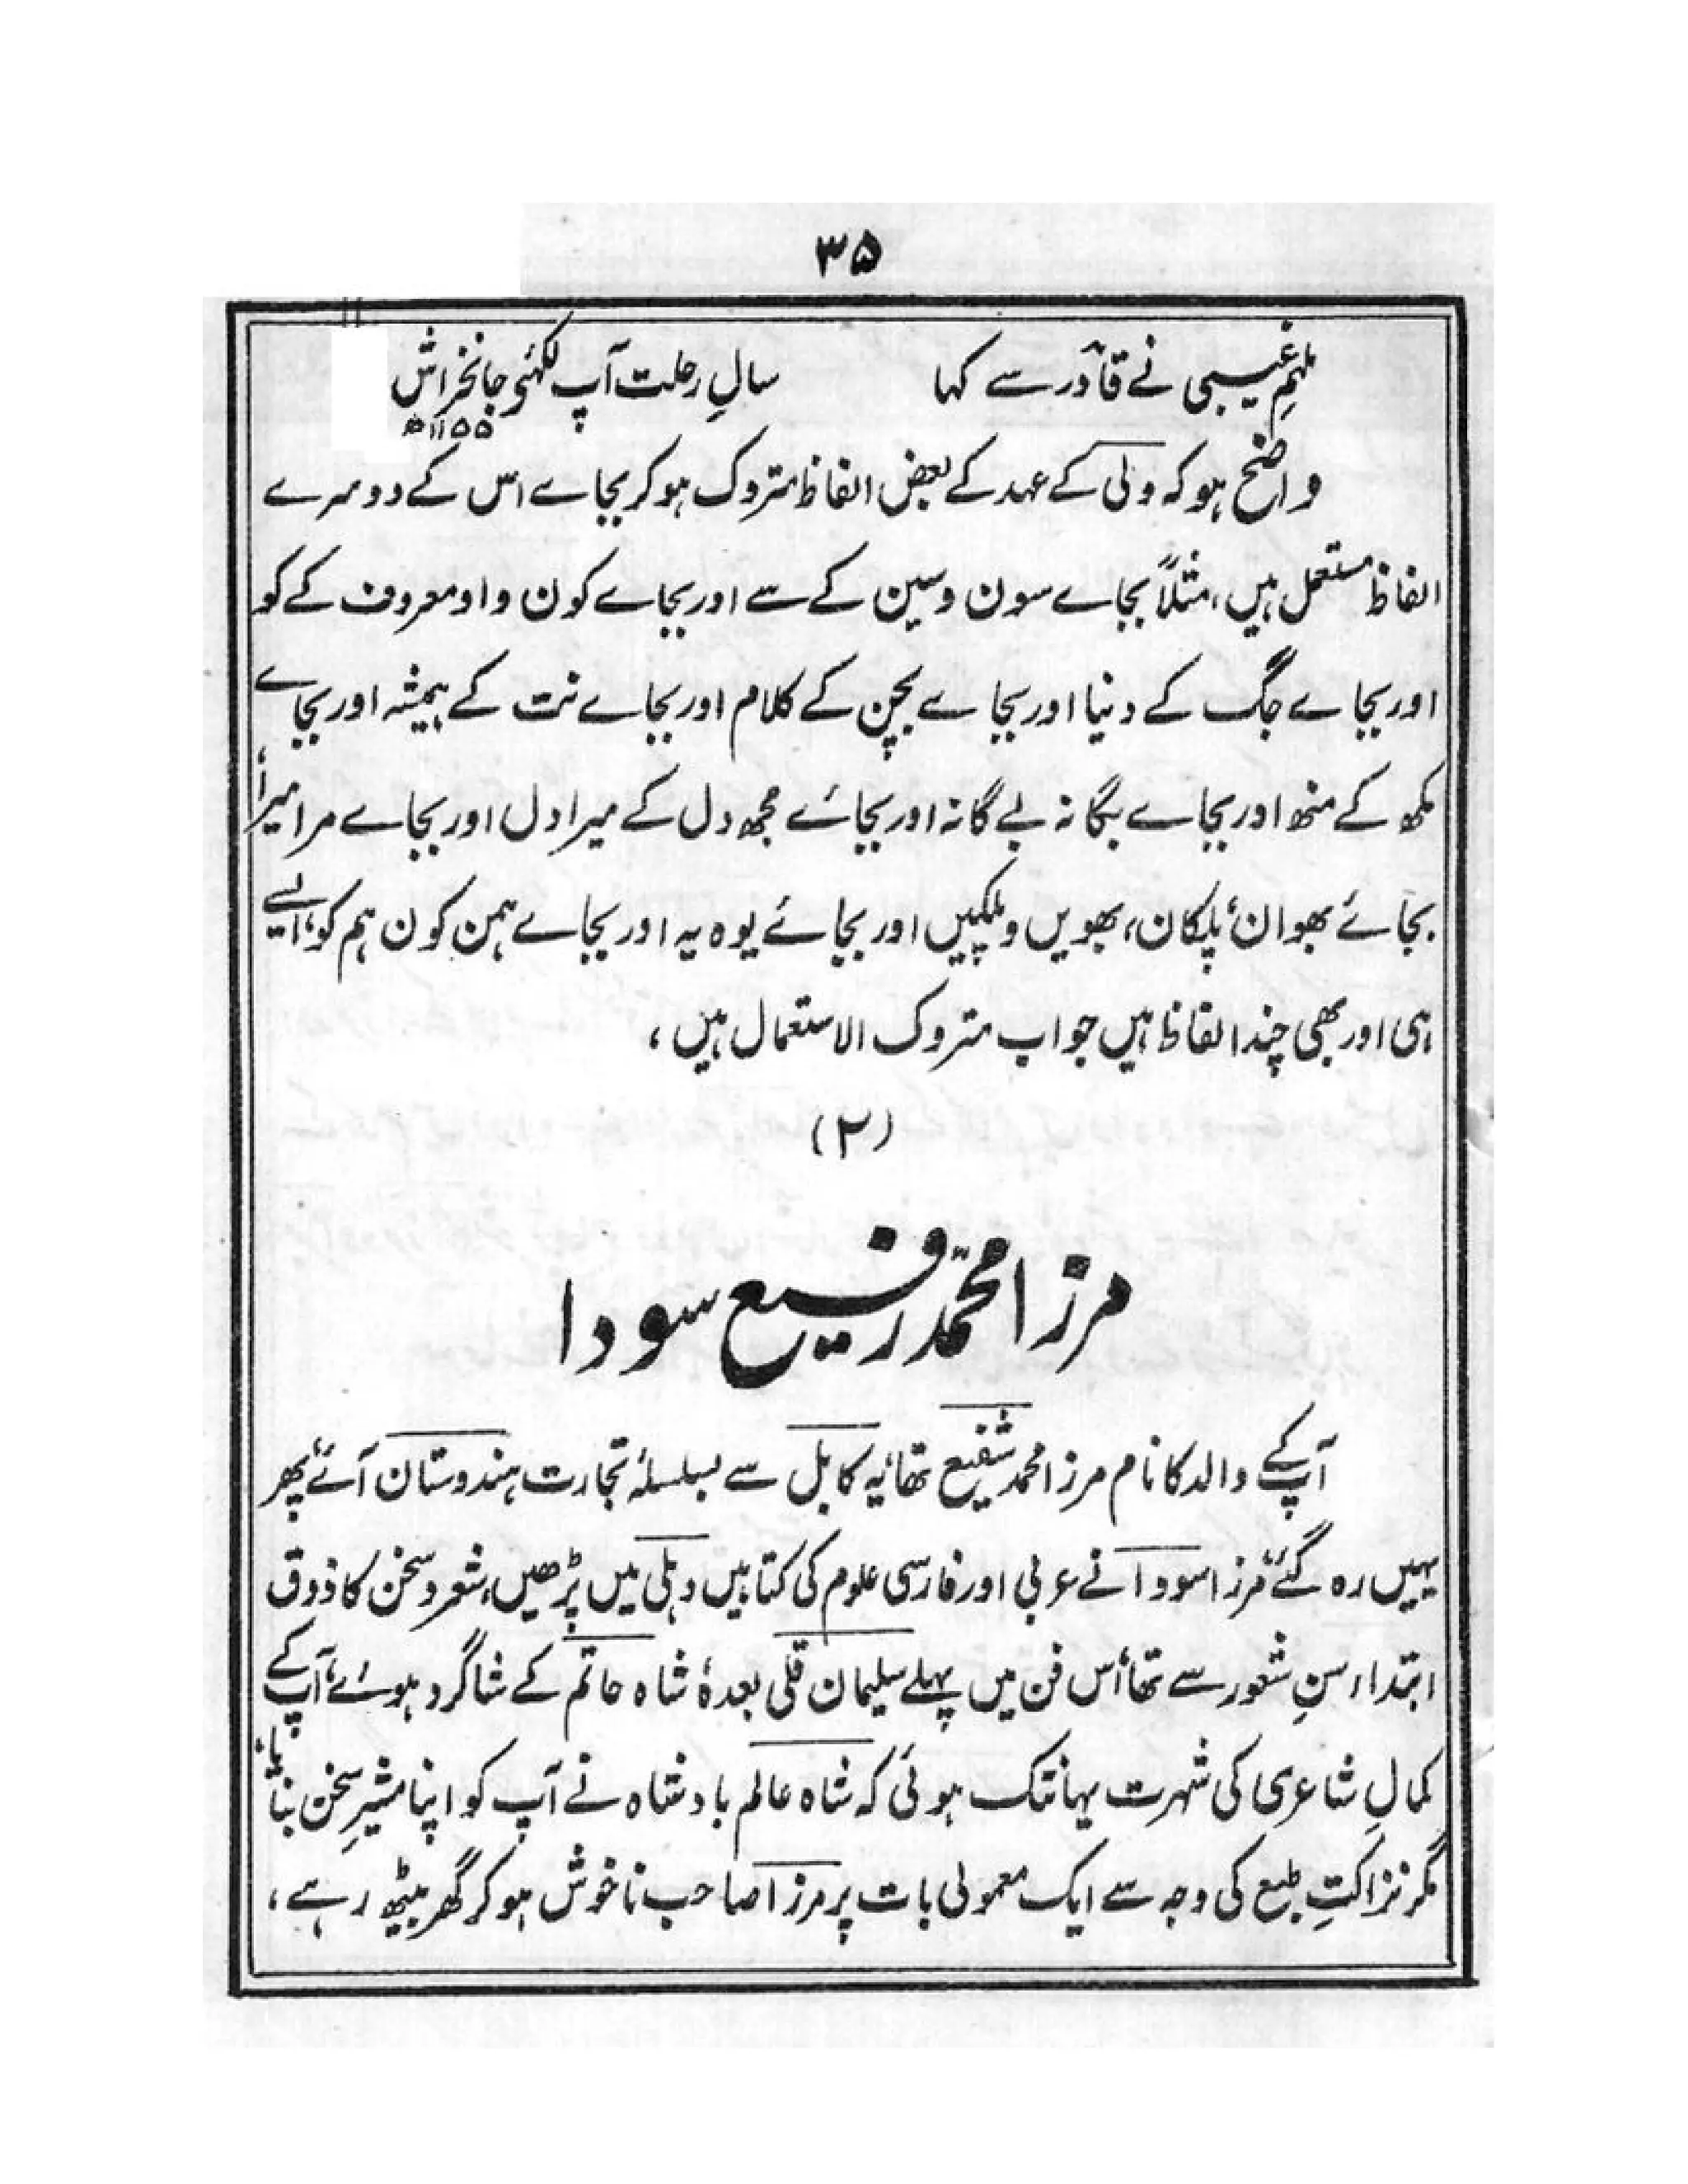 ۳۵
ملہمِ غیبی نے قادر سے کہا سالِ رحلت آپ لکھئو جانخراش
۱۱۵۵ھ
واضح ہو کہ ولی کے عہد کے بعض الفاظ متروک ہو کر بجاے اس کے دوسرے
الفاظ مستعمل ہیں، مثلاً بجاے سون وسین کے سے اور بجاے کون واو معروف کے کو
اور بجاے جگ کے دنیا اور بجاے بچن کے کلام اور بجاے نت کے ہمیشہ اور بجاے
مکھ کے منھ اور بجاے بگانہ بے گانہ اور بجائے مجھ دل کے میرا دل اور بجاے مرا میرا،
بجائے بھوان، پلکان، بھویں و پلکیں اور بجائے یوہ یہ اور بجاے ہمن کون ہم کو، ایسے
ہی اور بھی چند الفاظ ہیں جو اب متروک الاستعمال ہیں،
(۲)
مرزا محمد رفیع سودا
آپ کے والد کا نام مرزا محمد شفیع تھا، یہ کابل سے بسلسلۂ تجارت ہندوستان آئے، پھر
یہیں رہ گئے، مرزا سودا نے عربی اور فارسی علوم کی کتابیں دہلی میں پڑھیں، شعر و سخن کا ذوق
ابتداء سنِ شعور سے تھا، اس فن میں پہلے سلیمان قلی بعدہٗ شاہ حاتم کے شاگرد ہوئے، آپ کے
کمالِ شاعری کی شہرت یہانتک ہوئی کہ شاہ عالم بادشاہ نے آپ کو اپنا مشیرِ سخن بنایا،
مگر نزاکتِ طبع کی وجہ سے ایک معمولی بات پر مرزا صاحب ناخوش ہو کر گھر بیٹھ رہے،